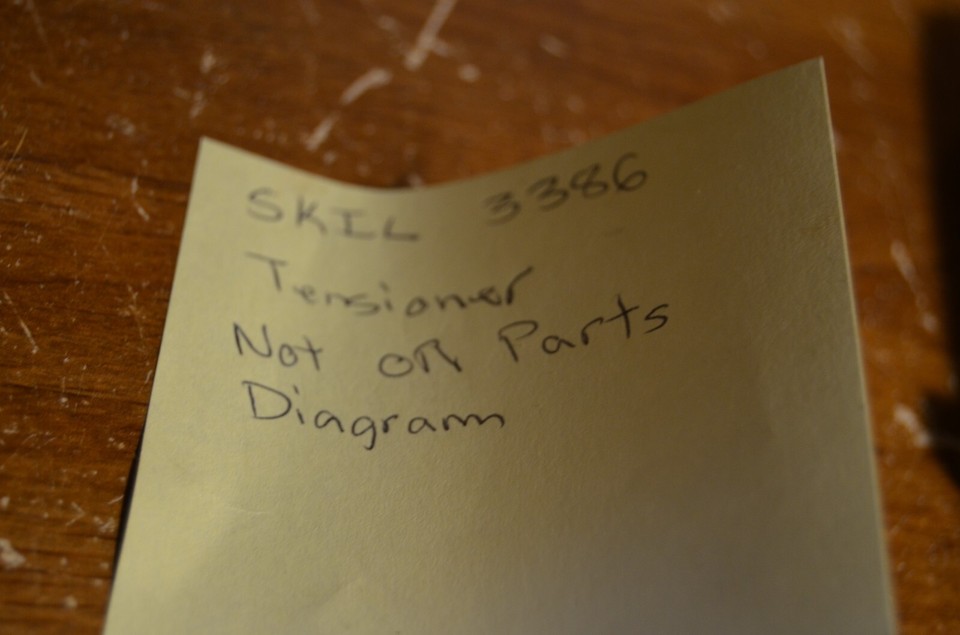 SKIL 3386
Tensioner
Not on Parts
Diagram